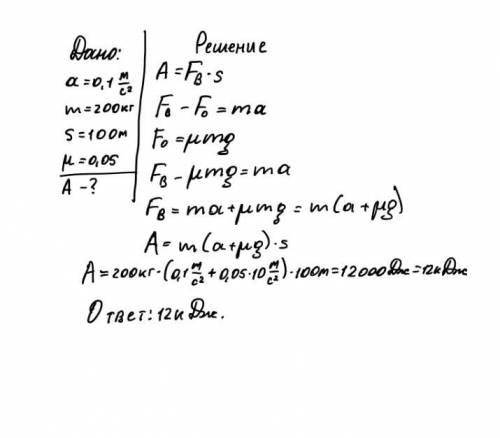 Дано:
a = 0,1 м/с²
m = 200 кг
S = 100 м
μ = 0,05
A - ?
Решение
A = Fв · s
Fв - F₀ = ma
F₀ = μmg
Fв - μmg = ma
Fв = ma + μmg = m(a + μg)
A = m(a + μg) · s
A = 200 кг · (0,1 м/с² + 0,05 · 10 м/с²) · 100 м = 12000 Дж = 12 к Дж
Ответ: 12 к Дж.